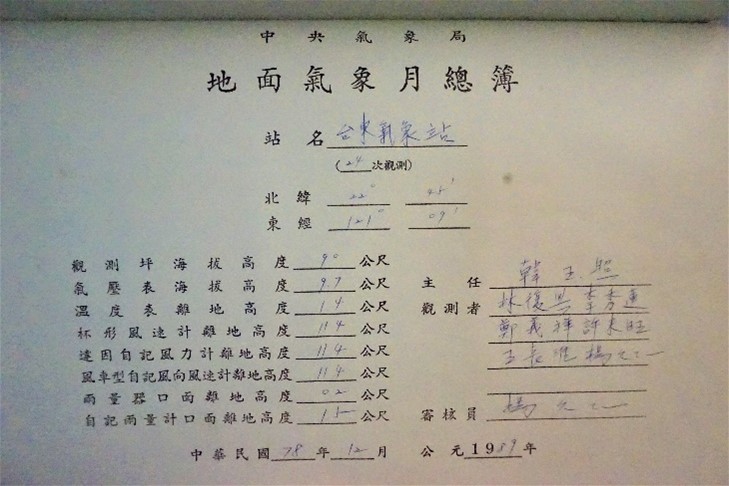 中央氣象局
地面氣象月總簿
站名 台東氣象站
(24次觀測)
北緯 22° 45'
東經 121° 09'
觀測坪海拔高度 90 公尺
氣壓表海拔高度 9.7 公尺
溫度表離地高度 1.4 公尺
杯形風速計離地高度 11.4 公尺
達因自記風力計離地高度 11.4 公尺
風車型自記風向風速計離地高度 11.4 公尺
雨量器口面離地高度 0.2 公尺
自記雨量計口面離地高度 公尺
主任 韓玉照
觀測者 林復興 李秀蓮
鄭義輝 許東旺
王長進 楊
審核員 楊
中華民國 78 年 12 月 公元 1989 年